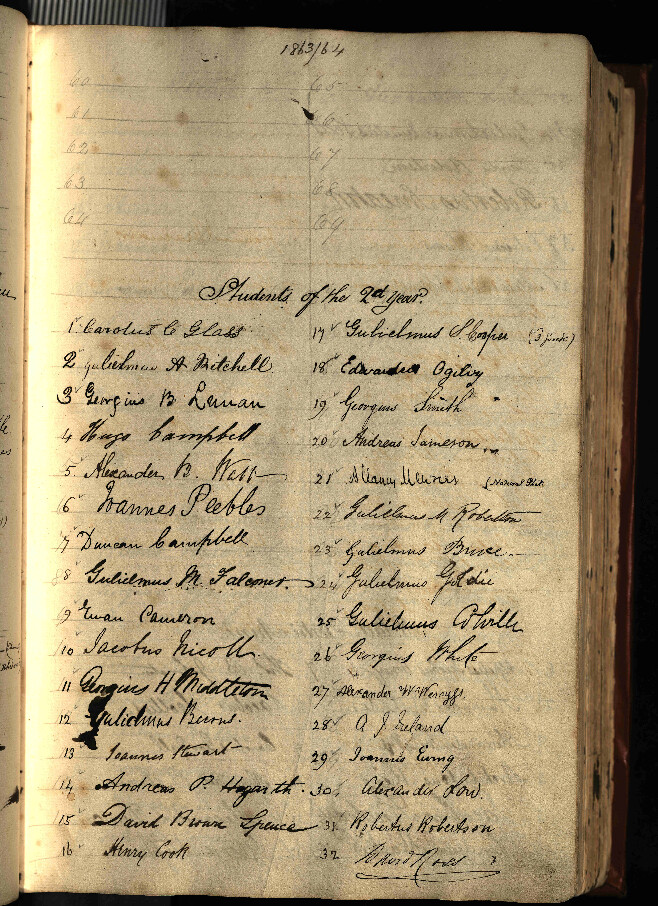 1863/64
60
65
61
66
62
67
63
68
64
69
Students of the 2d year.
1 Carolus C Glass
2 Gulielmus A Mitchell
3 Georgius B Lunan
4 Hugo Campbell
5 Alexander B. Watt
6 Joannes Peebles
7 Duncan Campbell
8 Gulielmus M. Falconer
9 Ewan Cameron
10 Jacobus Nicoll
11 Georgius H Middleton
12 Gulielmus Burns.
13 Joannes Stewart
14 Andreas P. Hogarth.
15 David Brown Spence
16 Henry Cook
17 Gulielmus S. Cooper
18 Edwardus Ogilvy
19 Georgius Smith
20 Andreas Jameson
21 Menzies (Natural Phil.
22 Gulielmus M Robertson
23 Gulielmus Bruce
24 Gulielmus Goldie
25 Gulielmus Colville
26 Georgius White
27 Alexander W Wemyss
28 A J Ireland
29 Joannis Ewing
30 Alexander Low.
31 Robertus Robertson
32 David Ross